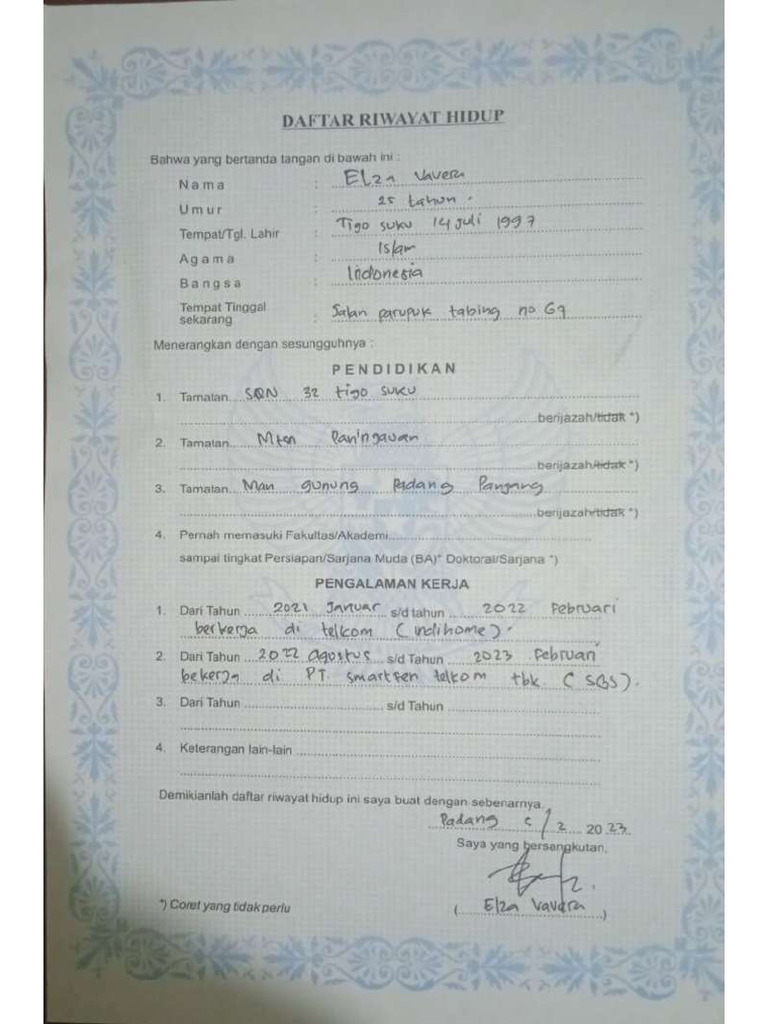 DAFTAR RIWAYAT HIDUP
Bahwa yang bertanda tangan di bawah ini :
Nama : Elza Vavera
Umur : 25 tahun.
Tempat/Tgl. Lahir : Tigo suku 14 Juli 1997
Agama : Islam
Bangsa : Indonesia
Tempat Tinggal
sekarang : Jalan parupuk tabing no 69
Menerangkan dengan sesungguhnya :
PENDIDIKAN
1. Tamatan SDN 32 tigo suku
berijazah/tidak *)
2. Tamatan Mtsn Paningauan
berijazah/tidak *)
3. Tamatan Man gunung Padang Panjang
berijazah/tidak *)
4. Pernah memasuki Fakultas/Akademi
sampai tingkat Persiapan/Sarjana Muda (BA)* Doktoral/Sarjana *)
PENGALAMAN KERJA
1. Dari Tahun 2021 Januar s/d tahun 2022 Februari
berkerja di telkom (indihome).
2. Dari Tahun 2022 agustus s/d Tahun 2023 Februari
bekerja di PT smartfren telkom tbk (SGS).
3. Dari Tahun s/d Tahun
4. Keterangan lain-lain
Demikianlah daftar riwayat hidup ini saya buat dengan sebenarnya.
Padang 5/2 2023
Saya yang bersangkutan,
*) Coret yang tidak perlu
(Elza Vavera)